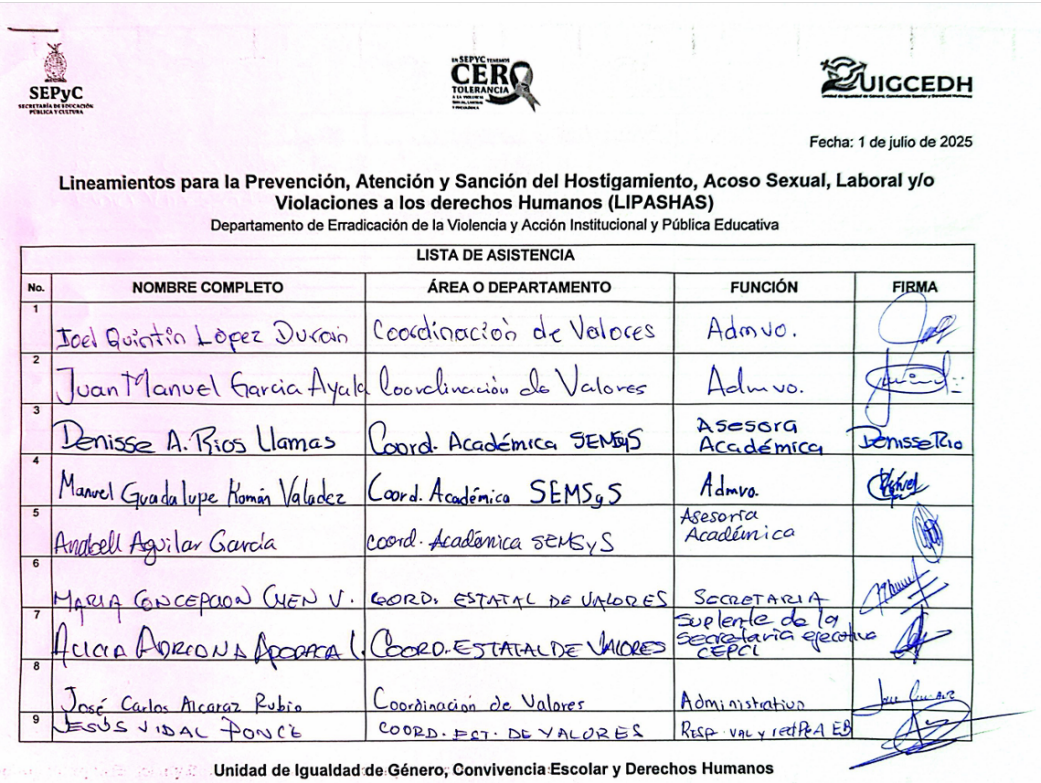 SEPyC
SECRETARÍA DE EDUCACIÓN
PÚBLICA Y CULTURA
EN SEPYC TENEMOS
CERO
TOLERANCIA
A LA VIOLENCIA
UIGCEDH
Unidad de Igualdad de Género, Convivencia Escolar y Derechos Humanos
Fecha: 1 de julio de 2025
Lineamientos para la Prevención, Atención y Sanción del Hostigamiento, Acoso Sexual, Laboral y/o
Violaciones a los derechos Humanos (LIPASHAS)
Departamento de Erradicación de la Violencia y Acción Institucional y Pública Educativa
LISTA DE ASISTENCIA
No. NOMBRE COMPLETO ÁREA O DEPARTAMENTO FUNCIÓN FIRMA
1 Joel Quintín López Durán Coordinación de Valores Admvo.
2 Juan Manuel Garcia Ayala Coordinación de Valores Admvo.
3 Denisse A. Rios Llamas Coord. Académica SEMSyS Asesora Académica Denisse Rio
4 Manuel Guadalupe Román Valadez Coord. Académica SEMSyS Admvo.
5 Anabell Aguilar García coord. Académica SEMSyS Asesoría Académica
6 MARIA CONCEPCION CHEN V. COORD. ESTATAL DE VALORES SECRETARIA
7 ALICIA ADRIANA APODACA L. COORD. ESTATAL DE VALORES Suplente de la secretaria ejecutiva CEPCI
8 José Carlos Alcaraz Rubio Coordinación de Valores Administrativo
9 JESÚS VIDAL PONCE COORD. EST. DE VALORES RESP. VAL y EB
Unidad de Igualdad de Género, Convivencia Escolar y Derechos Humanos